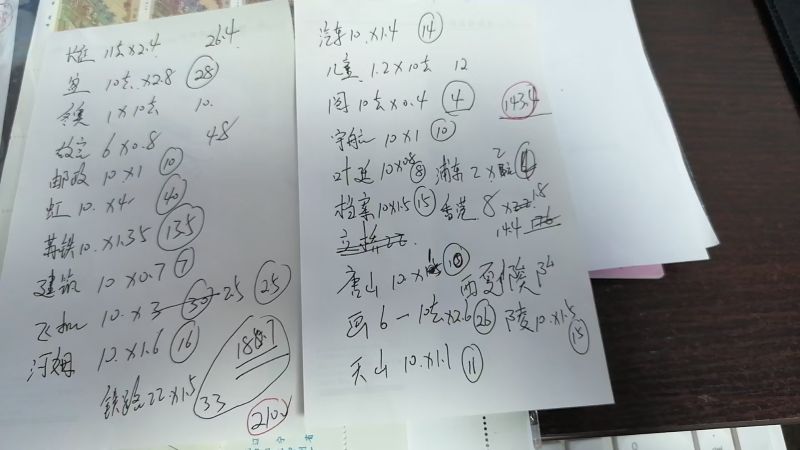 11套×2.4 26.4
10套×2.8 28
1×10套 10.
故宫 6×0.8 48
邮政 10×1 10
虹 10.×4 40
苏铁 10.×1.35 135
建筑 10×0.7 7
飞机 10.×3 30 25 25
河姆 10.×1.6 16
铁路 22×1.5 33
188.7
210.
汽车 10.×1.4 14
儿童 1.2×10套 12
阁 10套×0.4 4
143.4
宇航 10×1 10
叶廷 10×08 8 浦东 2×
档案 10×1.5 15 香港 8×1.8
14.4
唐山 10.× 10 西夏陵
画 6一10套×2.6 26 陵 10.×1.5
15
天山 10.×1.1 11